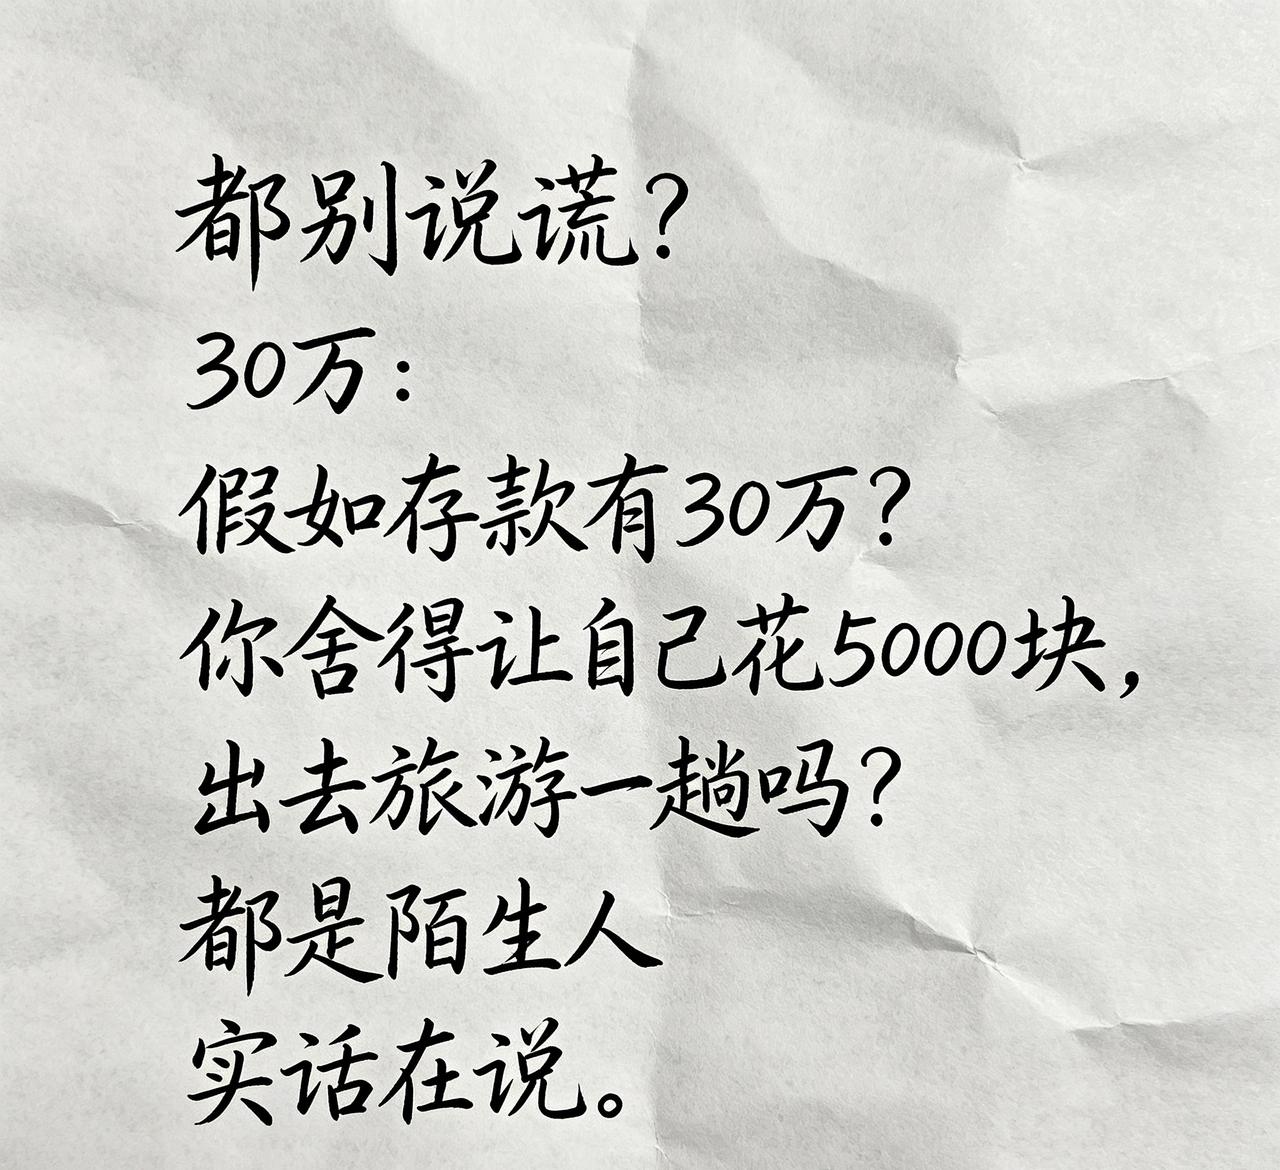 都别说谎？
30万：
假如存款有30万？
你舍得让自己花5000块，
出去旅游一趟吗？
都是陌生人
实话在说。